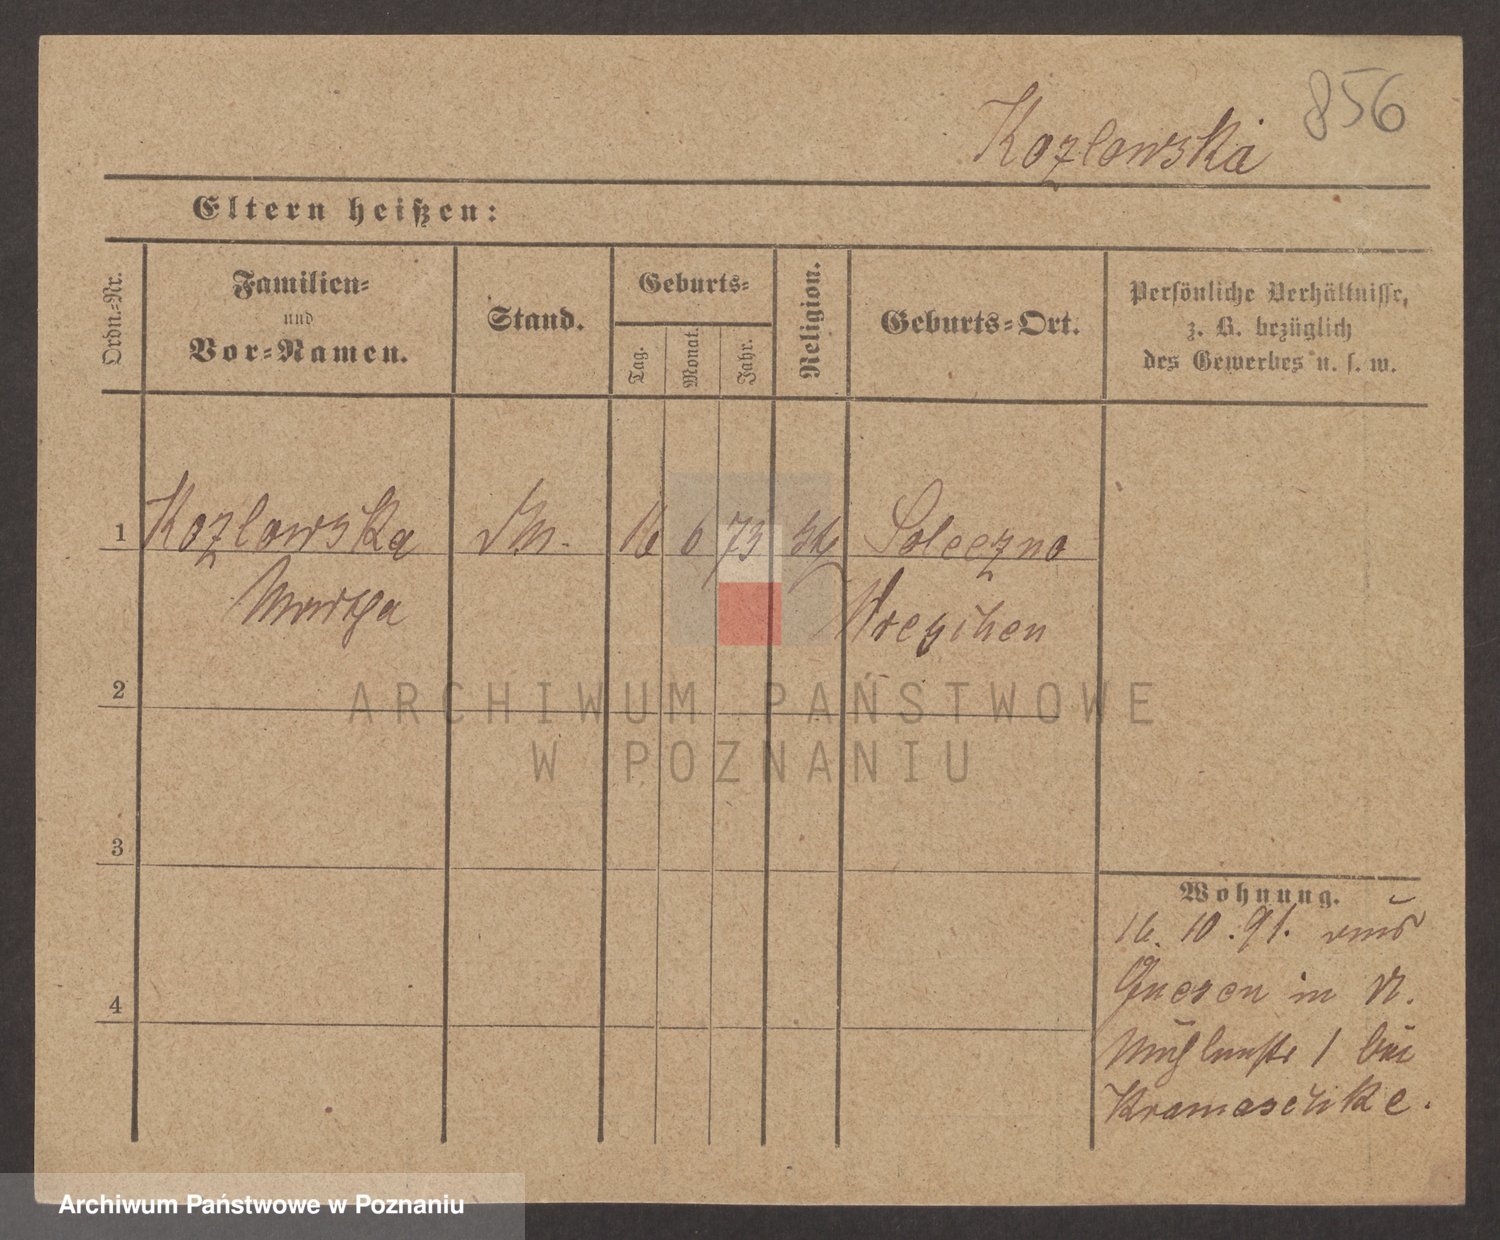 856
Kozlowska
Eltern heißen:
Ordn.-Nr.
Familien-
und
Vor-Namen.
Stand.
Geburts-
Tag.
Monat.
Jahr.
Religion.
Geburts-Ort.
Persönliche Verhältnisse,
z. B. bezüglich
des Gewerbes u. s. w.
1 Kozlowska 16 6 73 Soleczno
Martha Wreschen
2
3
4
Wohnung.
16. 10. 91. aus
Gnesen in
Mühlenstr 1 bei
Kramaschke.
ARCHIWUM PAŃSTWOWE
W POZNANIU
Archiwum Państwowe w Poznaniu